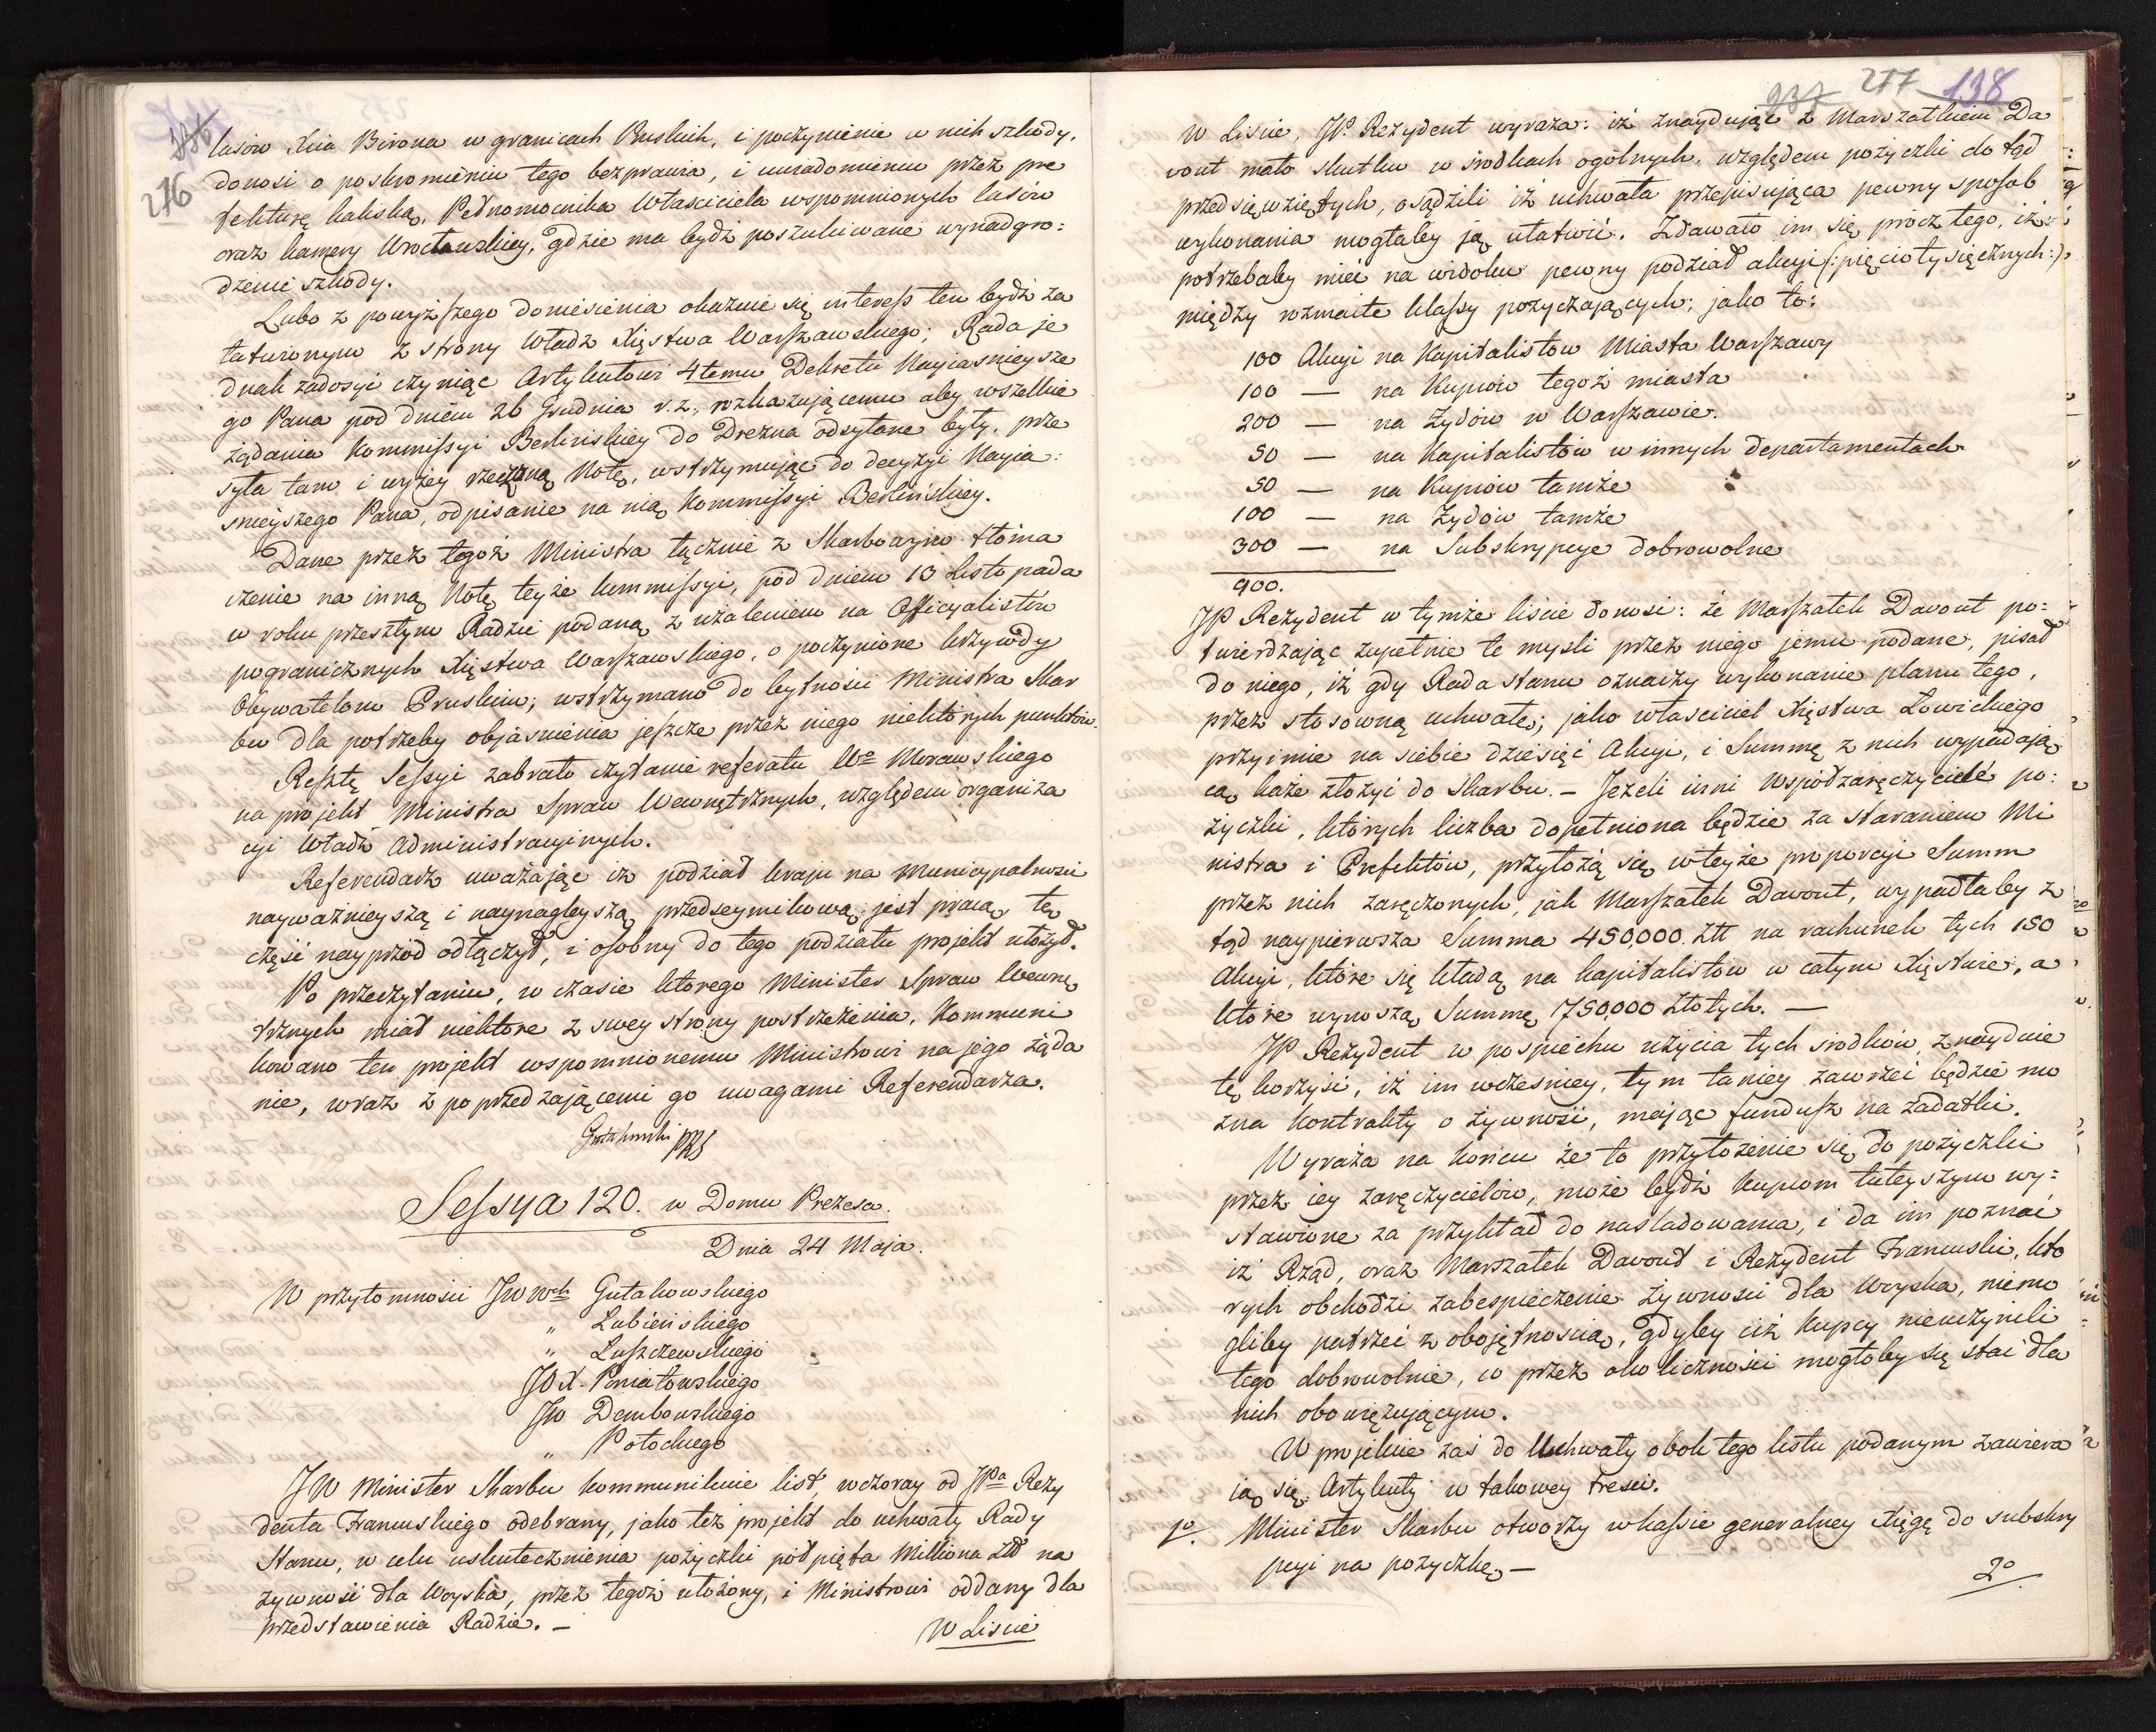 276
lasów Xcia Birona w granicach Pruskich, i poczynienie w nich szkody,
donosi o poskromieniu tego bezprawia, i uwiadomieniu przez pre
fekturę kaliską, Pełnomocnika Własciciela wspomnionych lasów
oraz kamery Wrocławskiey, gdzie ma bydź poszukiwane wynadgro=
dzenie szkody.
Lubo z powyżſzego doniesienia okazuie się intereſs ten bydź za
łatwionym z strony Władz Xięstwa Warſzawskiego; Rada je
dnak zadosyć czyniąc Artykułowi 4temu Dekretu Nayiasnieysze
go Pana pod dniem 26 Grudnia r.z., rozkazującemu aby wszelkie
żądania Kommiſsyi Berlińskiey do Drezna odsyłane były, prze
syła tam i wyżey rzeczoną Notę, wstrzymując do decyzyi Nayia=
snieyszego Pana, odpisanie na nią Kommiſsyi Berlińskiey.
Dane przez tegoż Ministra łącznie z Skarbowym tłóma
czenie na inną Notę teyże kommiſsyi, pod dniem 13 Listopada
w roku przeszłym Radzie podaną z użaleniem na Officyalistów
pogranicznych Xięstwa Warſzawskiego, o poczynione krzywdy
Obywatelom Pruskim; wstrzymano do bytności Ministra Skar
bu dla potrzeby objasnienia jeſzcze przez niego niektórych punktów.
Reſztę Seſsyi zabrało czytanie referatu Wo Morawskiego
na projekt Ministra Spraw Wewnętrznych, względem organiza
cyi Władz Administracyinych.
Referendarz uważając iż podział kraju na Municypalności
nayważnieyszą i naynagleyszą przedseymikową jest pracą, tę
część nayprzód odłączył, i osobny do tego podziału projekt ułożył.
Po przeczytaniu, w czasie którego Minister Spraw Wewnę
trznych miał niektóre z swey strony postrzeżenia, Kommuni
kowano ten projekt wspomnionemu Ministrowi na jego żąda
nie, wraz z poprzedzającemi go uwagami Referendarza.
Gutakowski PRS
Seſsya 120. w Domu Prezesa.
Dnia 24 Maja.
W przytomności JWWch Gutakowskiego
" Łubieńskiego
" Luſzczewskiego
JOX. Poniatowskiego
JW Dembowskiego
" Potockiego
JW Minister Skarbu kommunikuie list, wczoray od JPa Rezy
denta Francuskiego odebrany, jako też projekt do uchwały Rady
Stanu, w celu uskutecznienia pożyczki półpięta Milliona Złł na
żywność dla Woyska, przez tegoż ułożony, i Ministrowi oddany dla
przedstawienia Radzie. —
W Liscie
237 277 138
W Liscie, JP. Rezydent wyraża: iż znayduiąc z Marszałkiem Da
vout mało skutku w środkach ogólnych, względem pożyczki do tąd
przedsięwziętych, osądzili iż uchwała przepisująca pewny sposob
wykonania mogłaby ją ułatwić. Zdawało im się procz tego, iż
potrzebaby mieć na widoku pewny podział akcyi (:pięciotysięcznych:)
między rozmaite klaſsy pożyczających; jako to:
100 Akcyi na Kapitalistow Miasta Warſzawy
100 — na Kupców tegoż miasta
200 — na Żydów w Warſzawie.
50 — na Kapitalistów w innych Departamentach
50 — na Kupców tamże
100 — na Żydów tamże
300 — na Subskrypcye dobrowolne
900.
JP Rezydent w tymże liście donosi: że Marſzałek Davout po=
twierdzając zupełnie te mysli przez niego jemu podane, pisał
do niego, iż gdy Rada stanu oznaczy wykonanie planu tego,
przez stosowną uchwałę; jako własciciel Xięstwa Łowickiego
przyimie na siebie dziesięć Akcyi, i Summę z nich wypadają
cą każe złożyć do Skarbu. — Jeżeli inni Wspołzaręczyciele po=
życzki, których liczba dopełniona będzie za staraniem Mi
nistra i Prefektów, przyłożą się w teyże proporcyi Summ
przez nich zaręczonych, jak Marſzałek Davout, wypadłaby z
tąd naypierwsza Summa 450,000 Złł na rachunek tych 150
Akcyi, które się kładą na kapitalistow w całym Xięstwie, a
które wynoszą Summę 750,000 Złotych. —
JP Rezydent w pospiechu użycia tych srodków, znayduie
tę korzyść, iż im wczesniey, tym taniey zawrzeć będzie mo
żna Kontrakty o żywność, mając funduſz na zadatki.
Wyraża na końcu że to przyłożenie się do pożyczki
przez iey zaręczycielów, może bydź kupcom tuteyszym wy=
stawione za przykład do nasladowania, i da im poznać
iż Rząd, oraz Marszałek Davout i Rezydent Francuski, któ
rych obchodzi zabespieczenie żywności dla Woyska, niemo
gliby patrzeć z obojętnością, gdyby ciż kupcy nieuczynili
tego dobrowolnie, co przez okoliczności mogłoby się stać dla
nich obowięzującym.
W projekcie zaś do Uchwały obok tego listu podanym zawiera
ją się Artykuły w takowey tresci.
1o. Minister Skarbu otworzy w kaſsie generalney Xięgę do subskry
pcyi na pożyczkę, —
2o